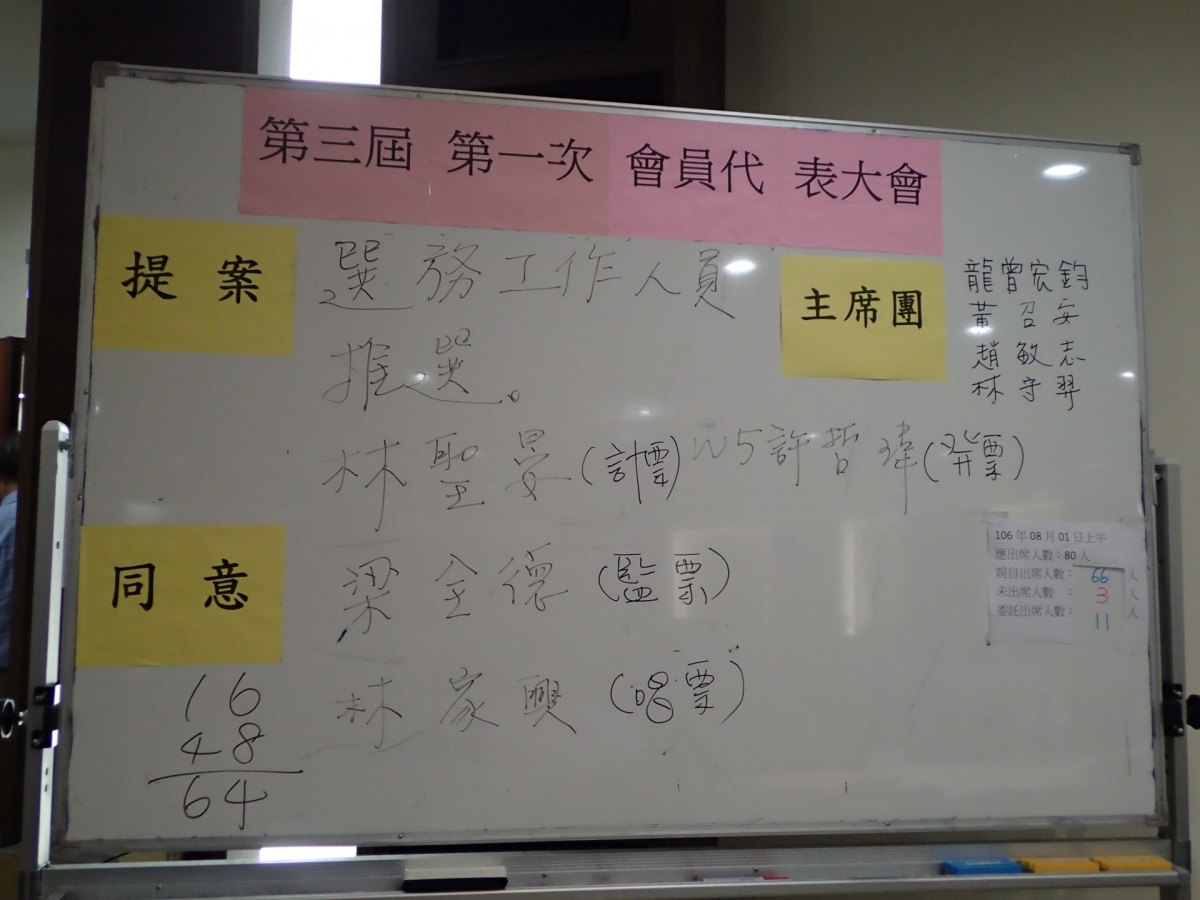 第三屆 第一次 會員代 表大會
提 案
選務工作人員
推選。
主席團
龍曾宏鈞
黃召安
趙敏志
林守羿
林聖晏(計票) W5許哲瑋(發票)
同 意
梁全德 (監票)
林家興 (唱票)
16
48
64
106年08月01日上午
應出席人數:80人
親自出席人數: 66 人
未出席人數 : 3 人
委託出席人數: 11 人